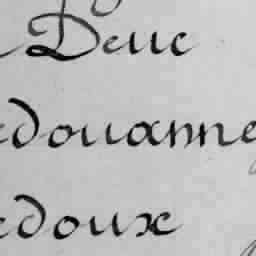 Deuc
edouanne
edoux